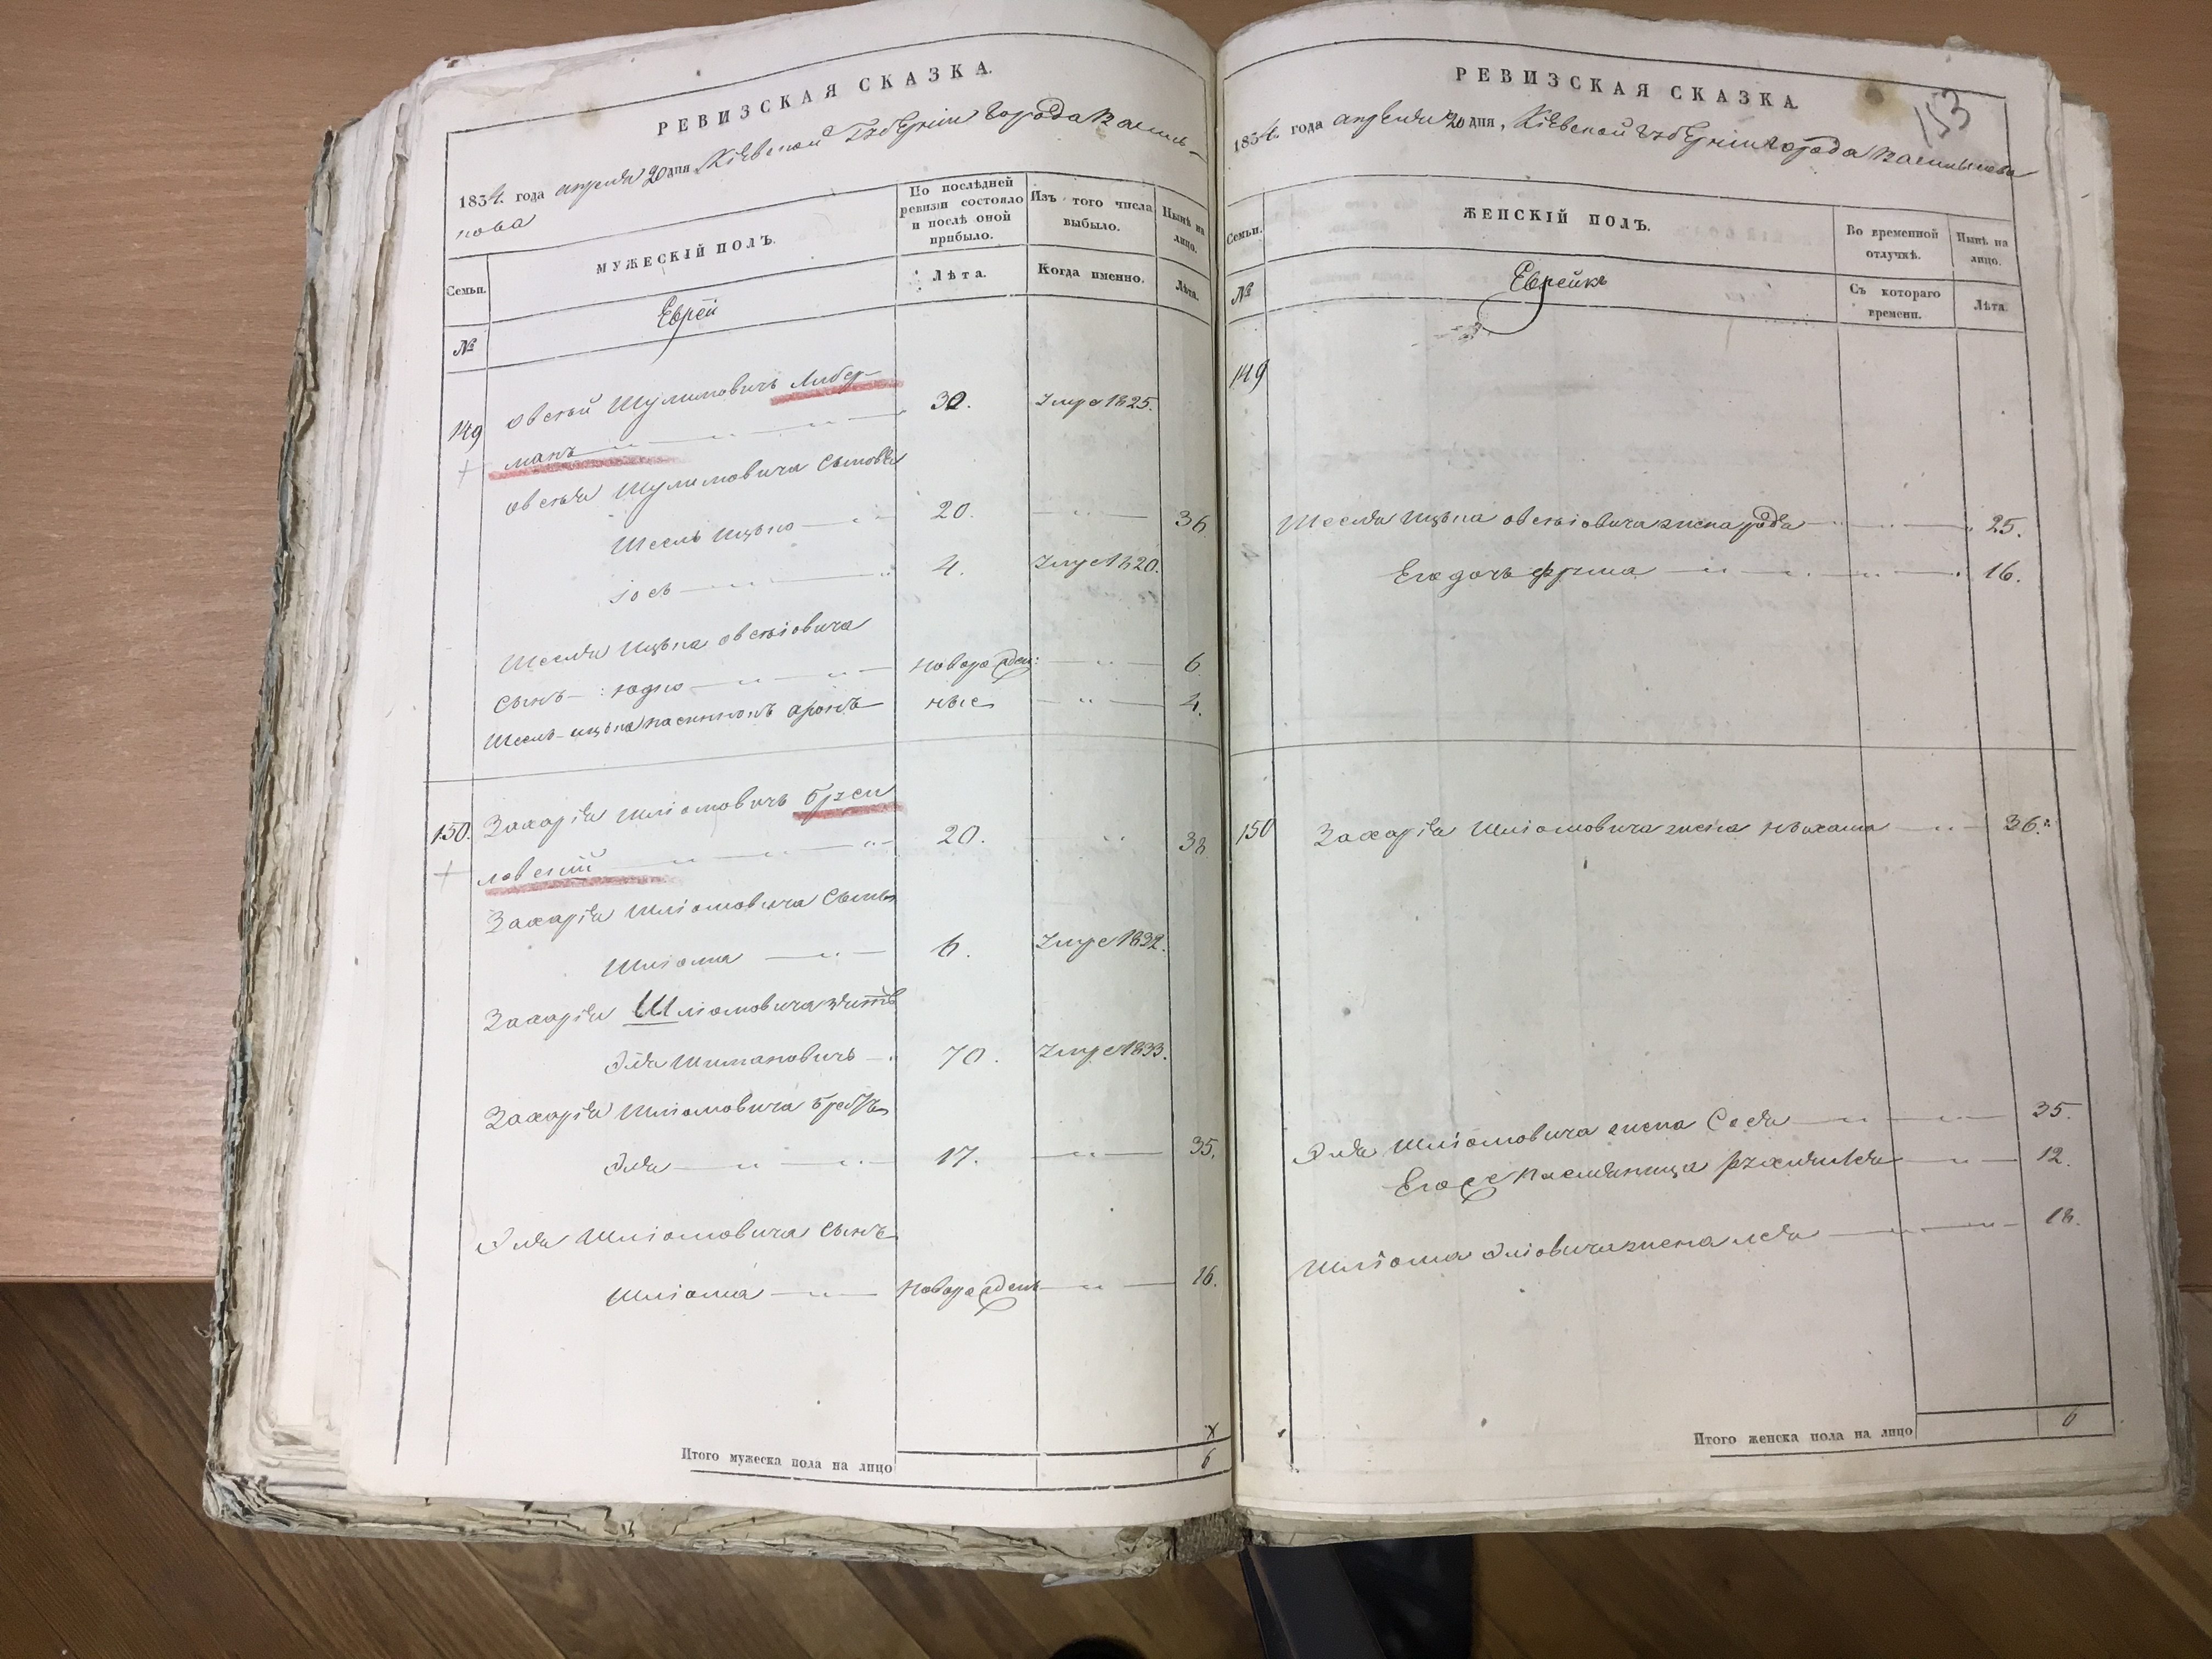 РЕВИЗСКАЯ СКАЗКА.
1834. года апреля 20 дня, Кіевской Губерніи Города Василь-
кова
Семьи.
МУЖЕСКІЙ ПОЛЪ.
По послѣдней ревизіи состояло и послѣ оной прибыло.
Изъ того числа выбыло.
Нынѣ на лицо.
№
Еврей
Лѣта.
Когда именно.
Лѣта.
149 Овсѣй Шулимовичъ Либер-
манъ 30. Умре 1825.
Овсѣя Шулимовича сыновья
Шселъ Ицко 20. 36
Іосъ 4. Умре 1820.
Шселя Ицька Овсѣіовича
сынъ: Юдко Новорожден: 6
Шселъ-ицька пасынокъ Аронъ ные 4.
150. Захарія Шліомовичъ Бреси
ловский 20. 38
Захарія Шліомовича сынъ
Шліома 6. Умре 1832.
Захарія Шліомовича зять
Эля Шимановичъ 70. Умре 1833.
Захарія Шліомовича братъ
Эля 17. 35.
Эля Шліомовича сынъ
Шліома Новорожден 16.
х
Итого мужеска пола на лицо 6
РЕВИЗСКАЯ СКАЗКА.
153
1834 года апреля 20 дня, Кіевской губерніи города Василькова
Семьи.
ЖЕНСКІЙ ПОЛЪ.
Во временной отлучкѣ.
Нынѣ на лицо.
№
Еврейкѣ
Съ котораго времени.
Лѣта.
149
Шселя Ицька Овсѣіовича жена 25.
Его дочь Фрума 16.
150 Захарія Шліомовича жена Нѣхама 36.
Эля Шліомовича жена Сося 35.
Его же племянница 12.
Шліома Эліовича жена Лея 18.
Итого женска пола на лицо 6